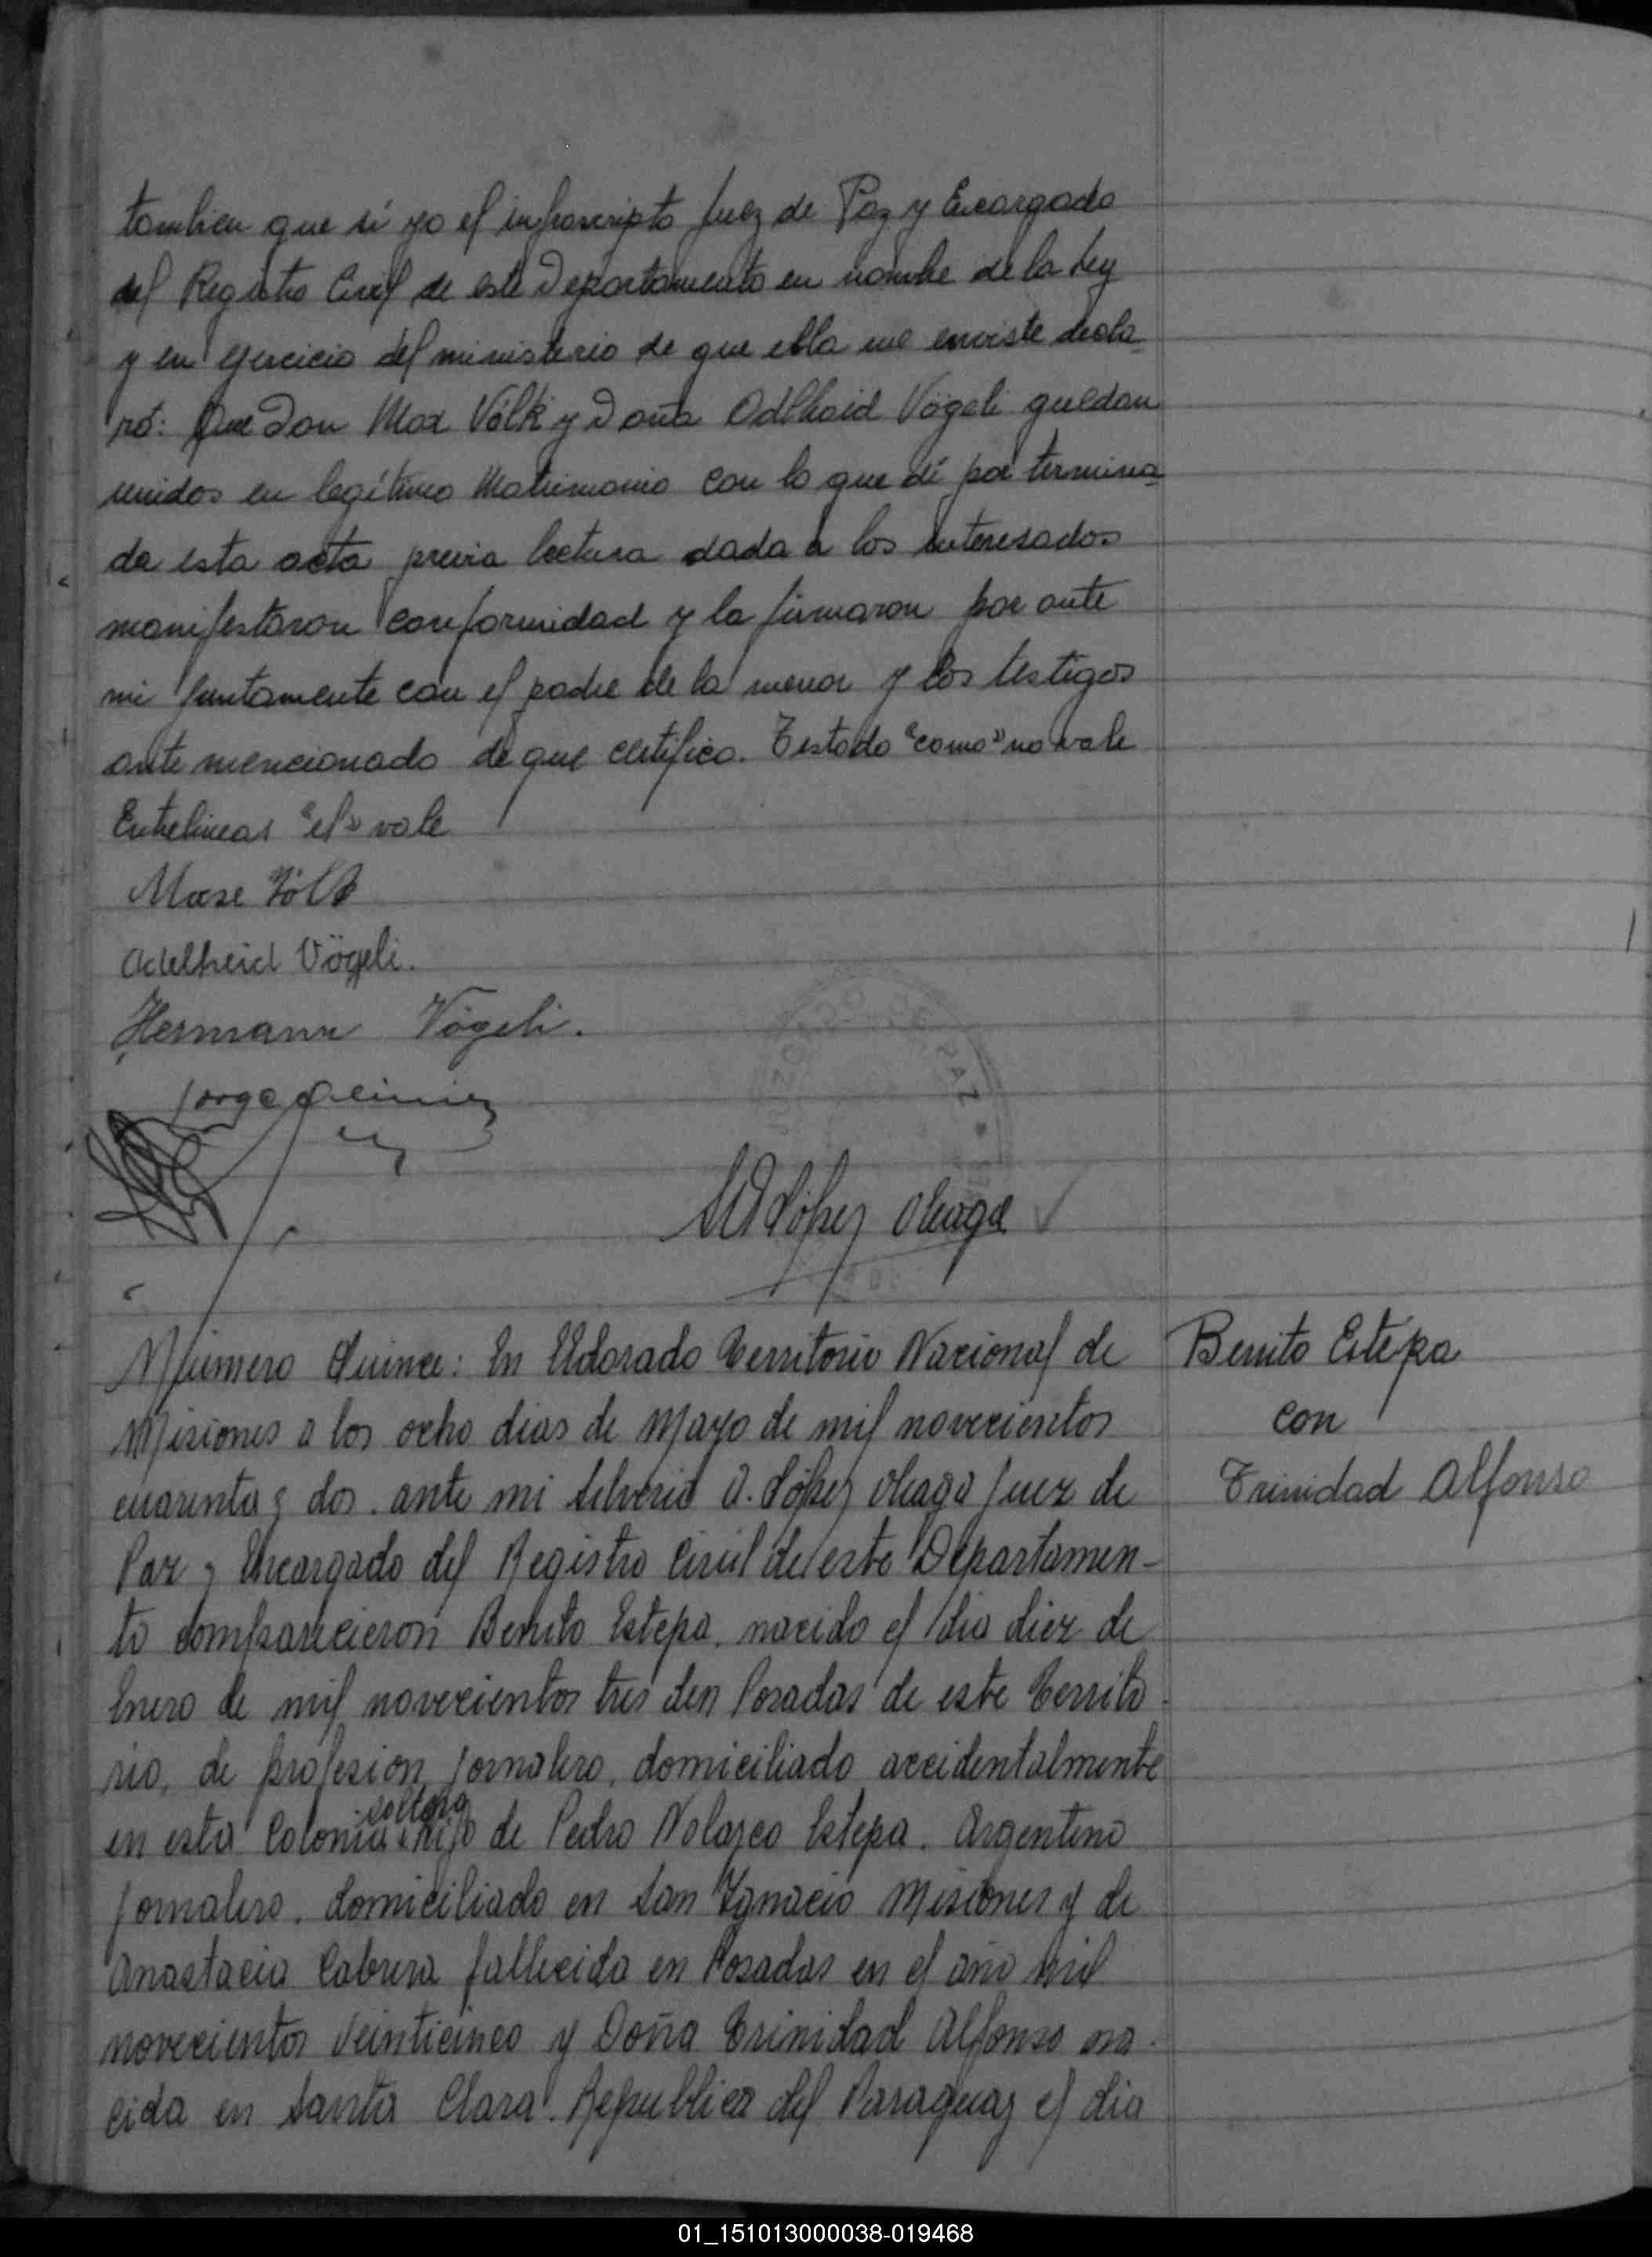 tambien que sí yo el infrascripto Juez de Paz y Encargado
del Registro Civil de este Departamento en nombre de la Ley
y en ejercicio del ministerio de que ella me enviste decla-
ró: Que Don Max Völk y Doña Odlhaid Vögeli quedan
unidos en legítimo Matrimonio con lo que dí por termina-
da esta acta previa lectura dada a los interesados
manifestaron conformidad y la firmaron por ante
mi juntamente con el padre de la menor y los testigos
ante mencionado de que certifico. Testado "como" no vale
Entrelineas "el" vale
Max Völk
Adelheid Vögeli.
Hermann Vögeli.
Jorge
López Oleaga
Número Quince: En Eldorado Territorio Nacional de
Misiones a los ocho dias de Mayo de mil novecientos
cuarenta y dos. ante mi Silverio A. López Oleaga Juez de
Paz y Encargado del Registro Civil de este Departamen-
to comparecieron Benito Estepa. nacido el dia diez de
Enero de mil novecientos tres en Posadas de este Territo-
rio, de profesion jornalero, domiciliado accidentalmente
soltero
en esta Colonia hijo de Pedro Nolazco Estepa. Argentino
jornalero. domiciliado en San Ygnacio Misiones y de
Anastacia Cabrera fallecida en Posadas en el año mil
novecientos veinticinco y Doña Trinidad Alfonso na-
cida en Santa Clara. Republica del Paraguay el dia
Benito Estepa
con
Trinidad Alfonso
01_151013000038-019468